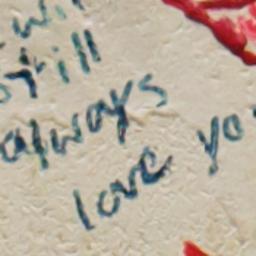 will
still
always
love yo